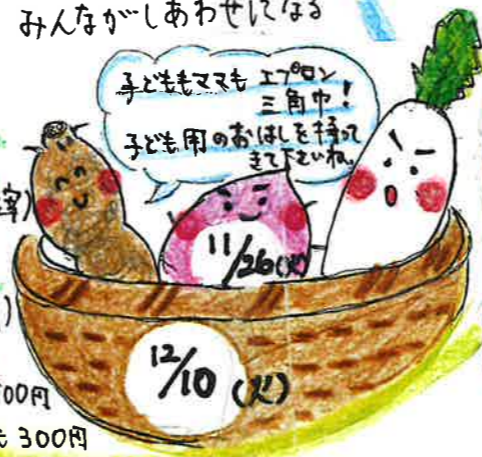 みんながしあわせになる
子どももママも エプロン
三角巾!
子ども用のおはしを持って
きて下さいね。
11/26(火)
12/10(火)
00円
300円